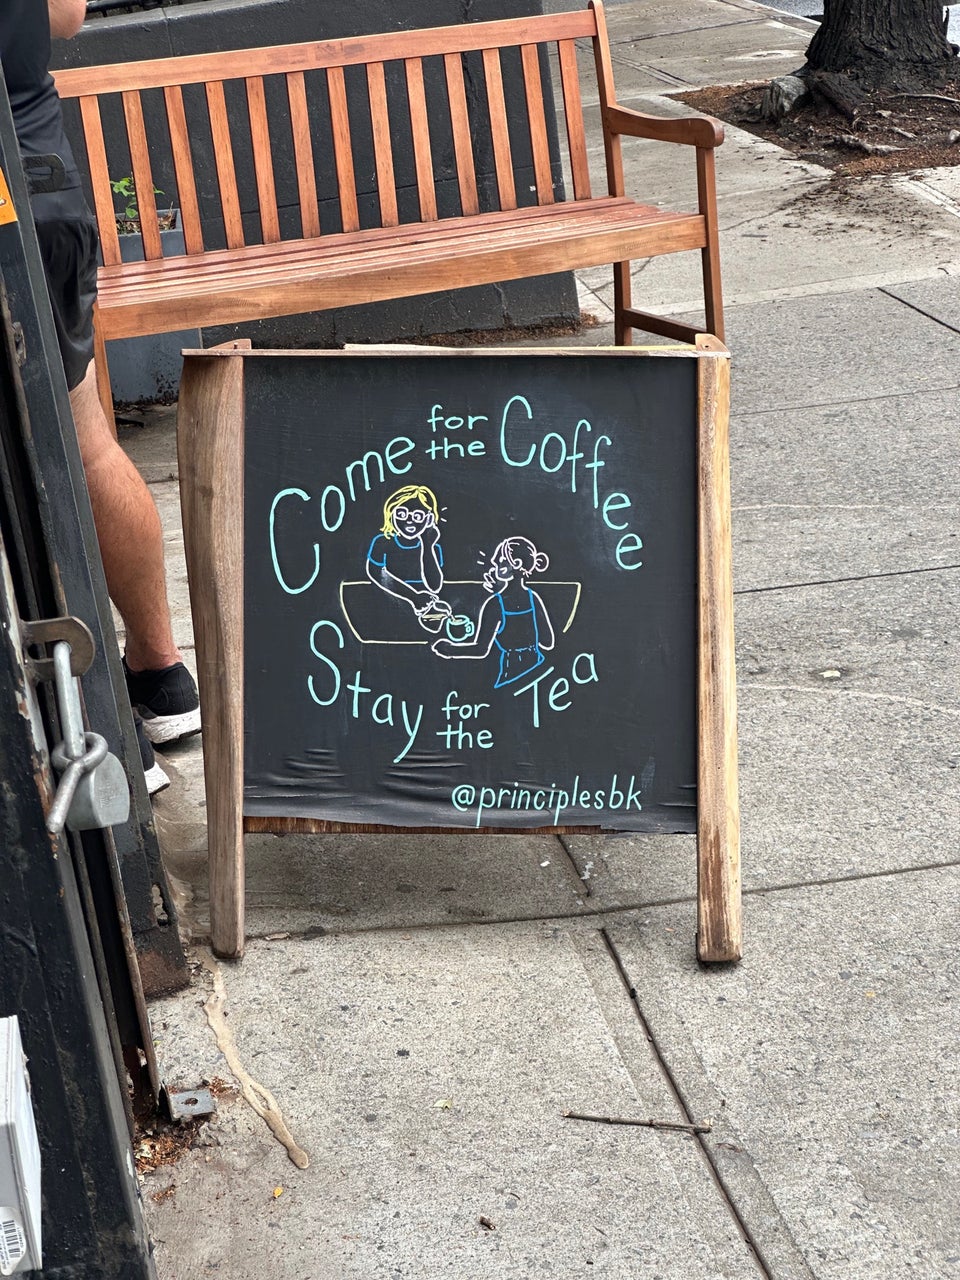 Come for the Coffee
Stay for the Tea
@principlesbk